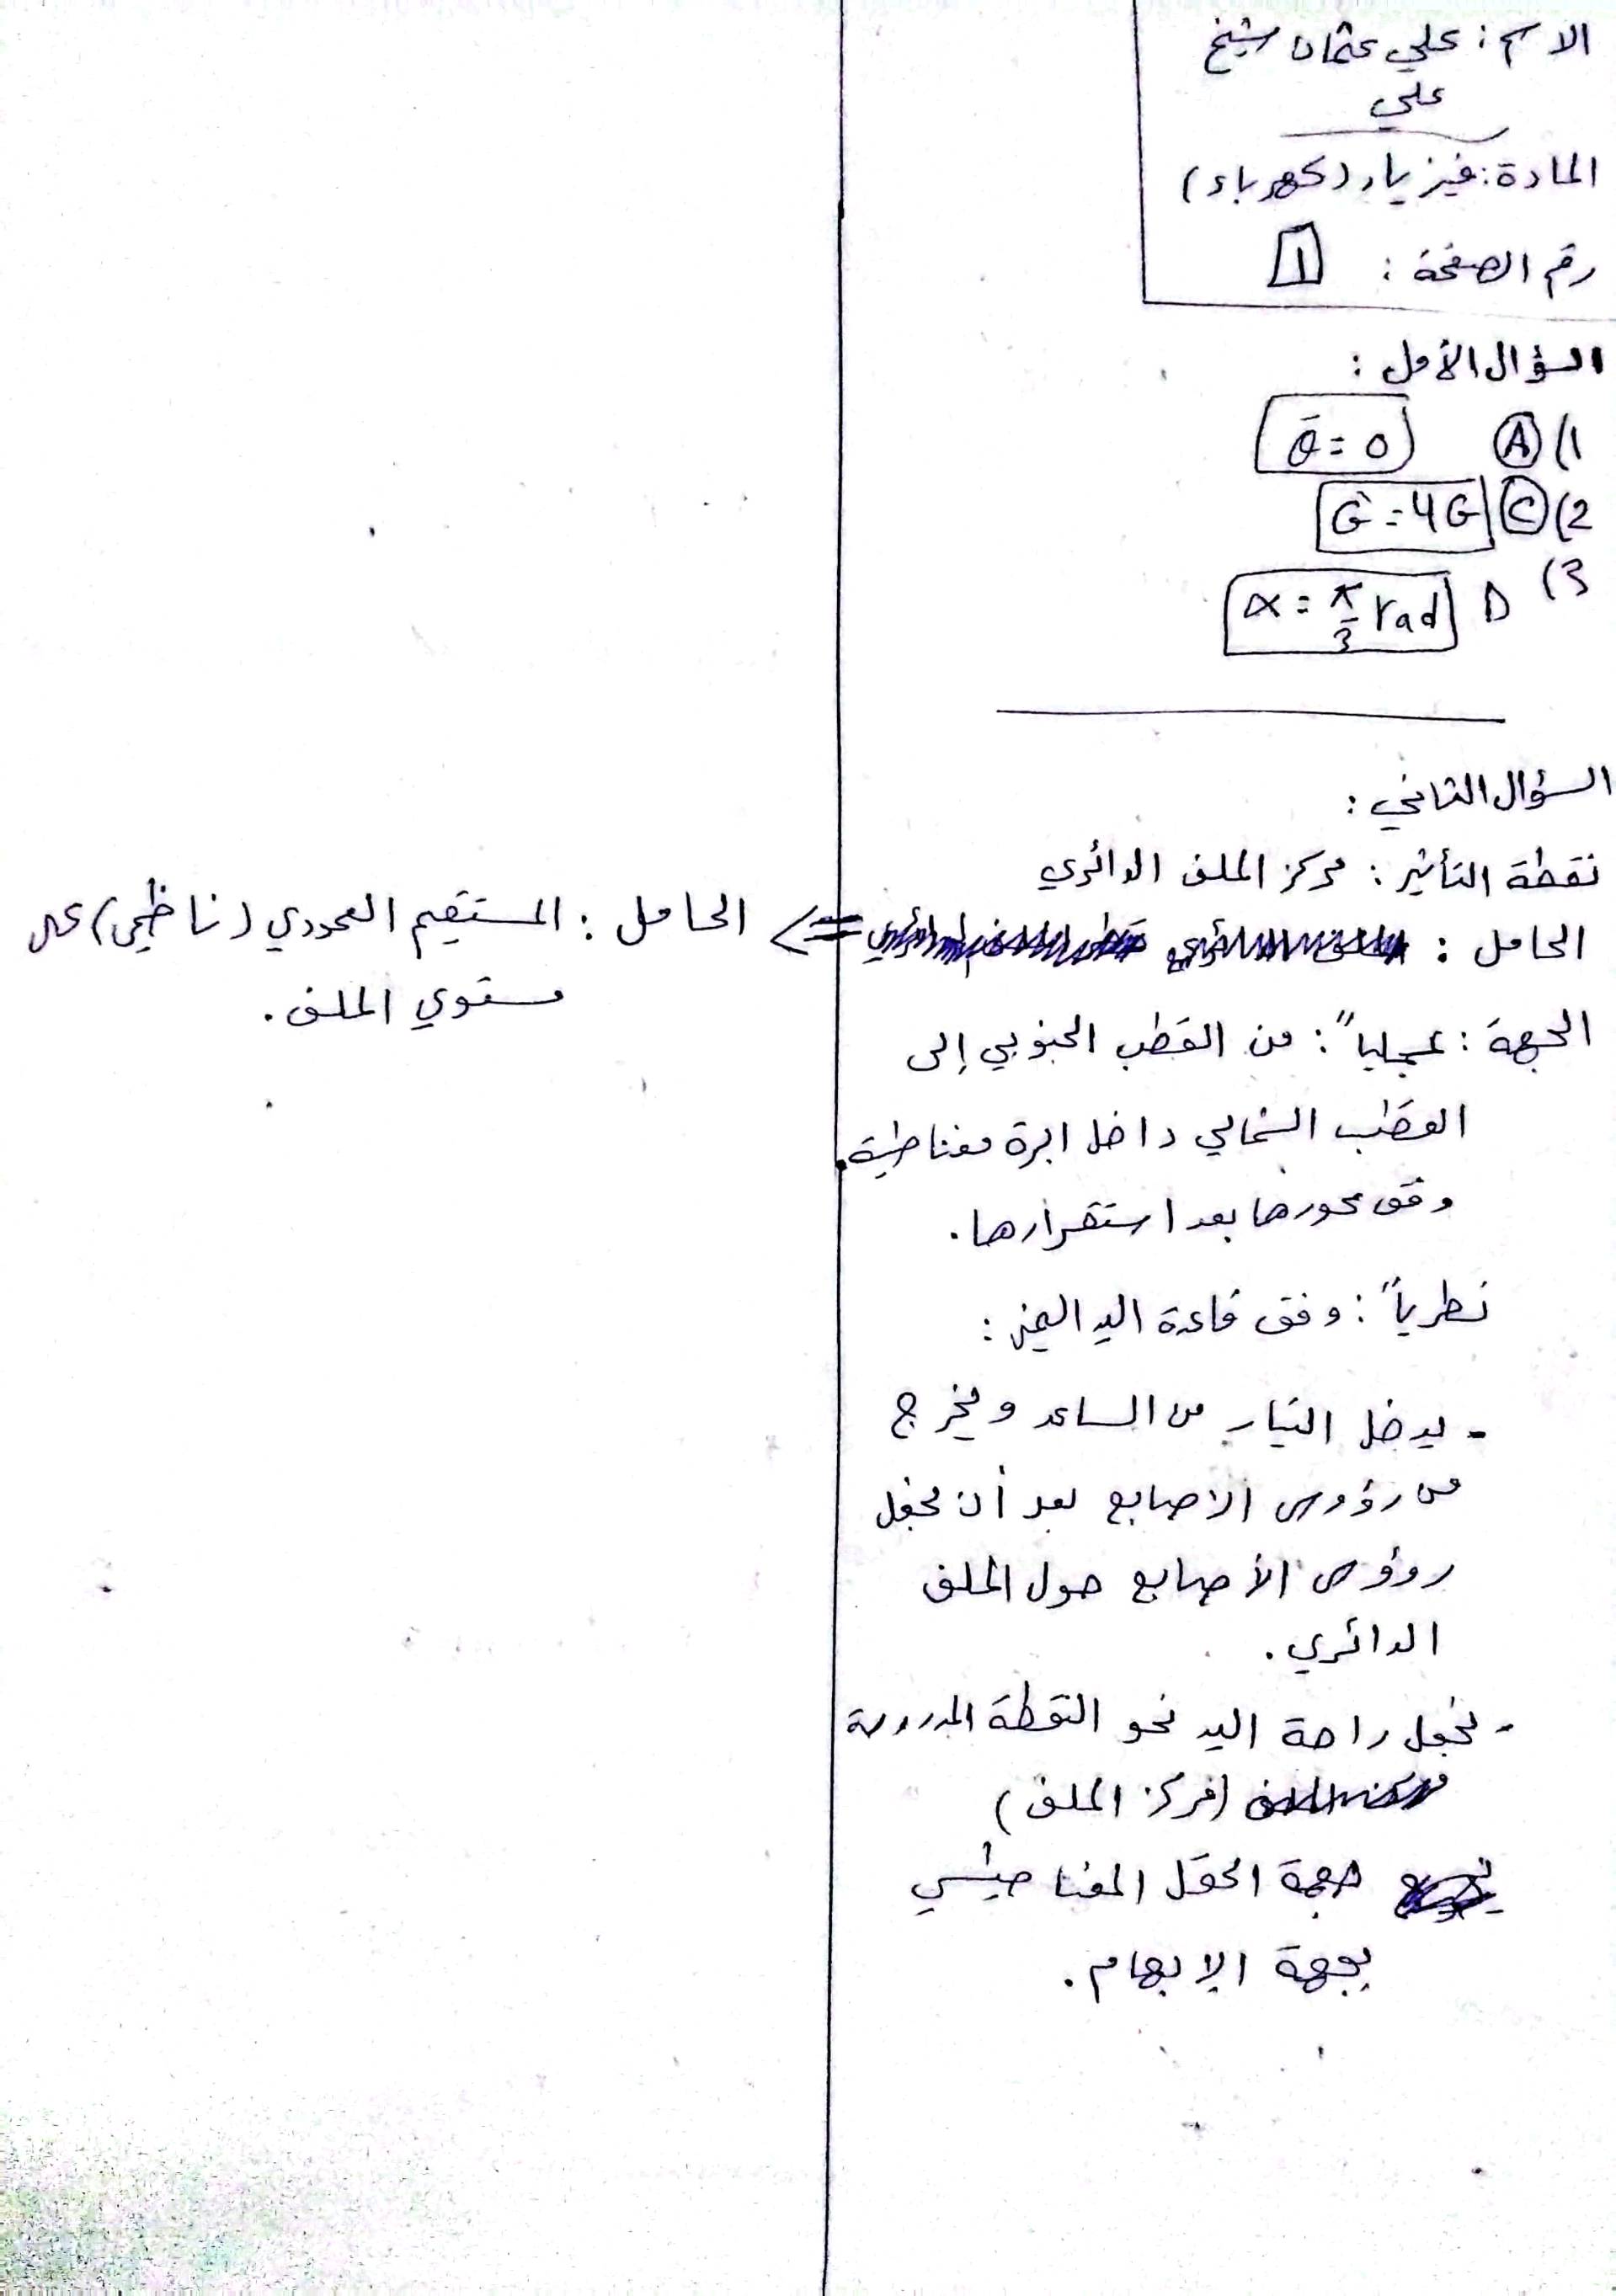 الاسم : علي عثمان شيخ
علي
المادة : فيزياء (كهرباء)
رقم الصفحة : 1
السؤال الأول :
1) A θ̄ = 0
2) C G' = 4G
3) D α = π/3 rad
السؤال الثاني :
نقطة التأثير : مركز الملف الدائري
الحامل : <= الحامل : المستقيم العمودي (ناظمي) على
مستوي الملف .
الجهة : عملياً : من القطب الجنوبي إلى
القطب الشمالي داخل ابرة مغناطيسية
وفق محورها بعد استقرارها .
نظرياً : وفق قاعدة اليد اليمنى :
- يدخل التيار من الساعد ويخرج
من رؤوس الاصابع بعد أن نجعل
رؤوس الأصابع حول الملف
الدائري .
- نجعل راحة اليد نحو النقطة المدروسة
(مركز الملف)
جهة الحقل المغناطيسي
بجهة الإبهام .